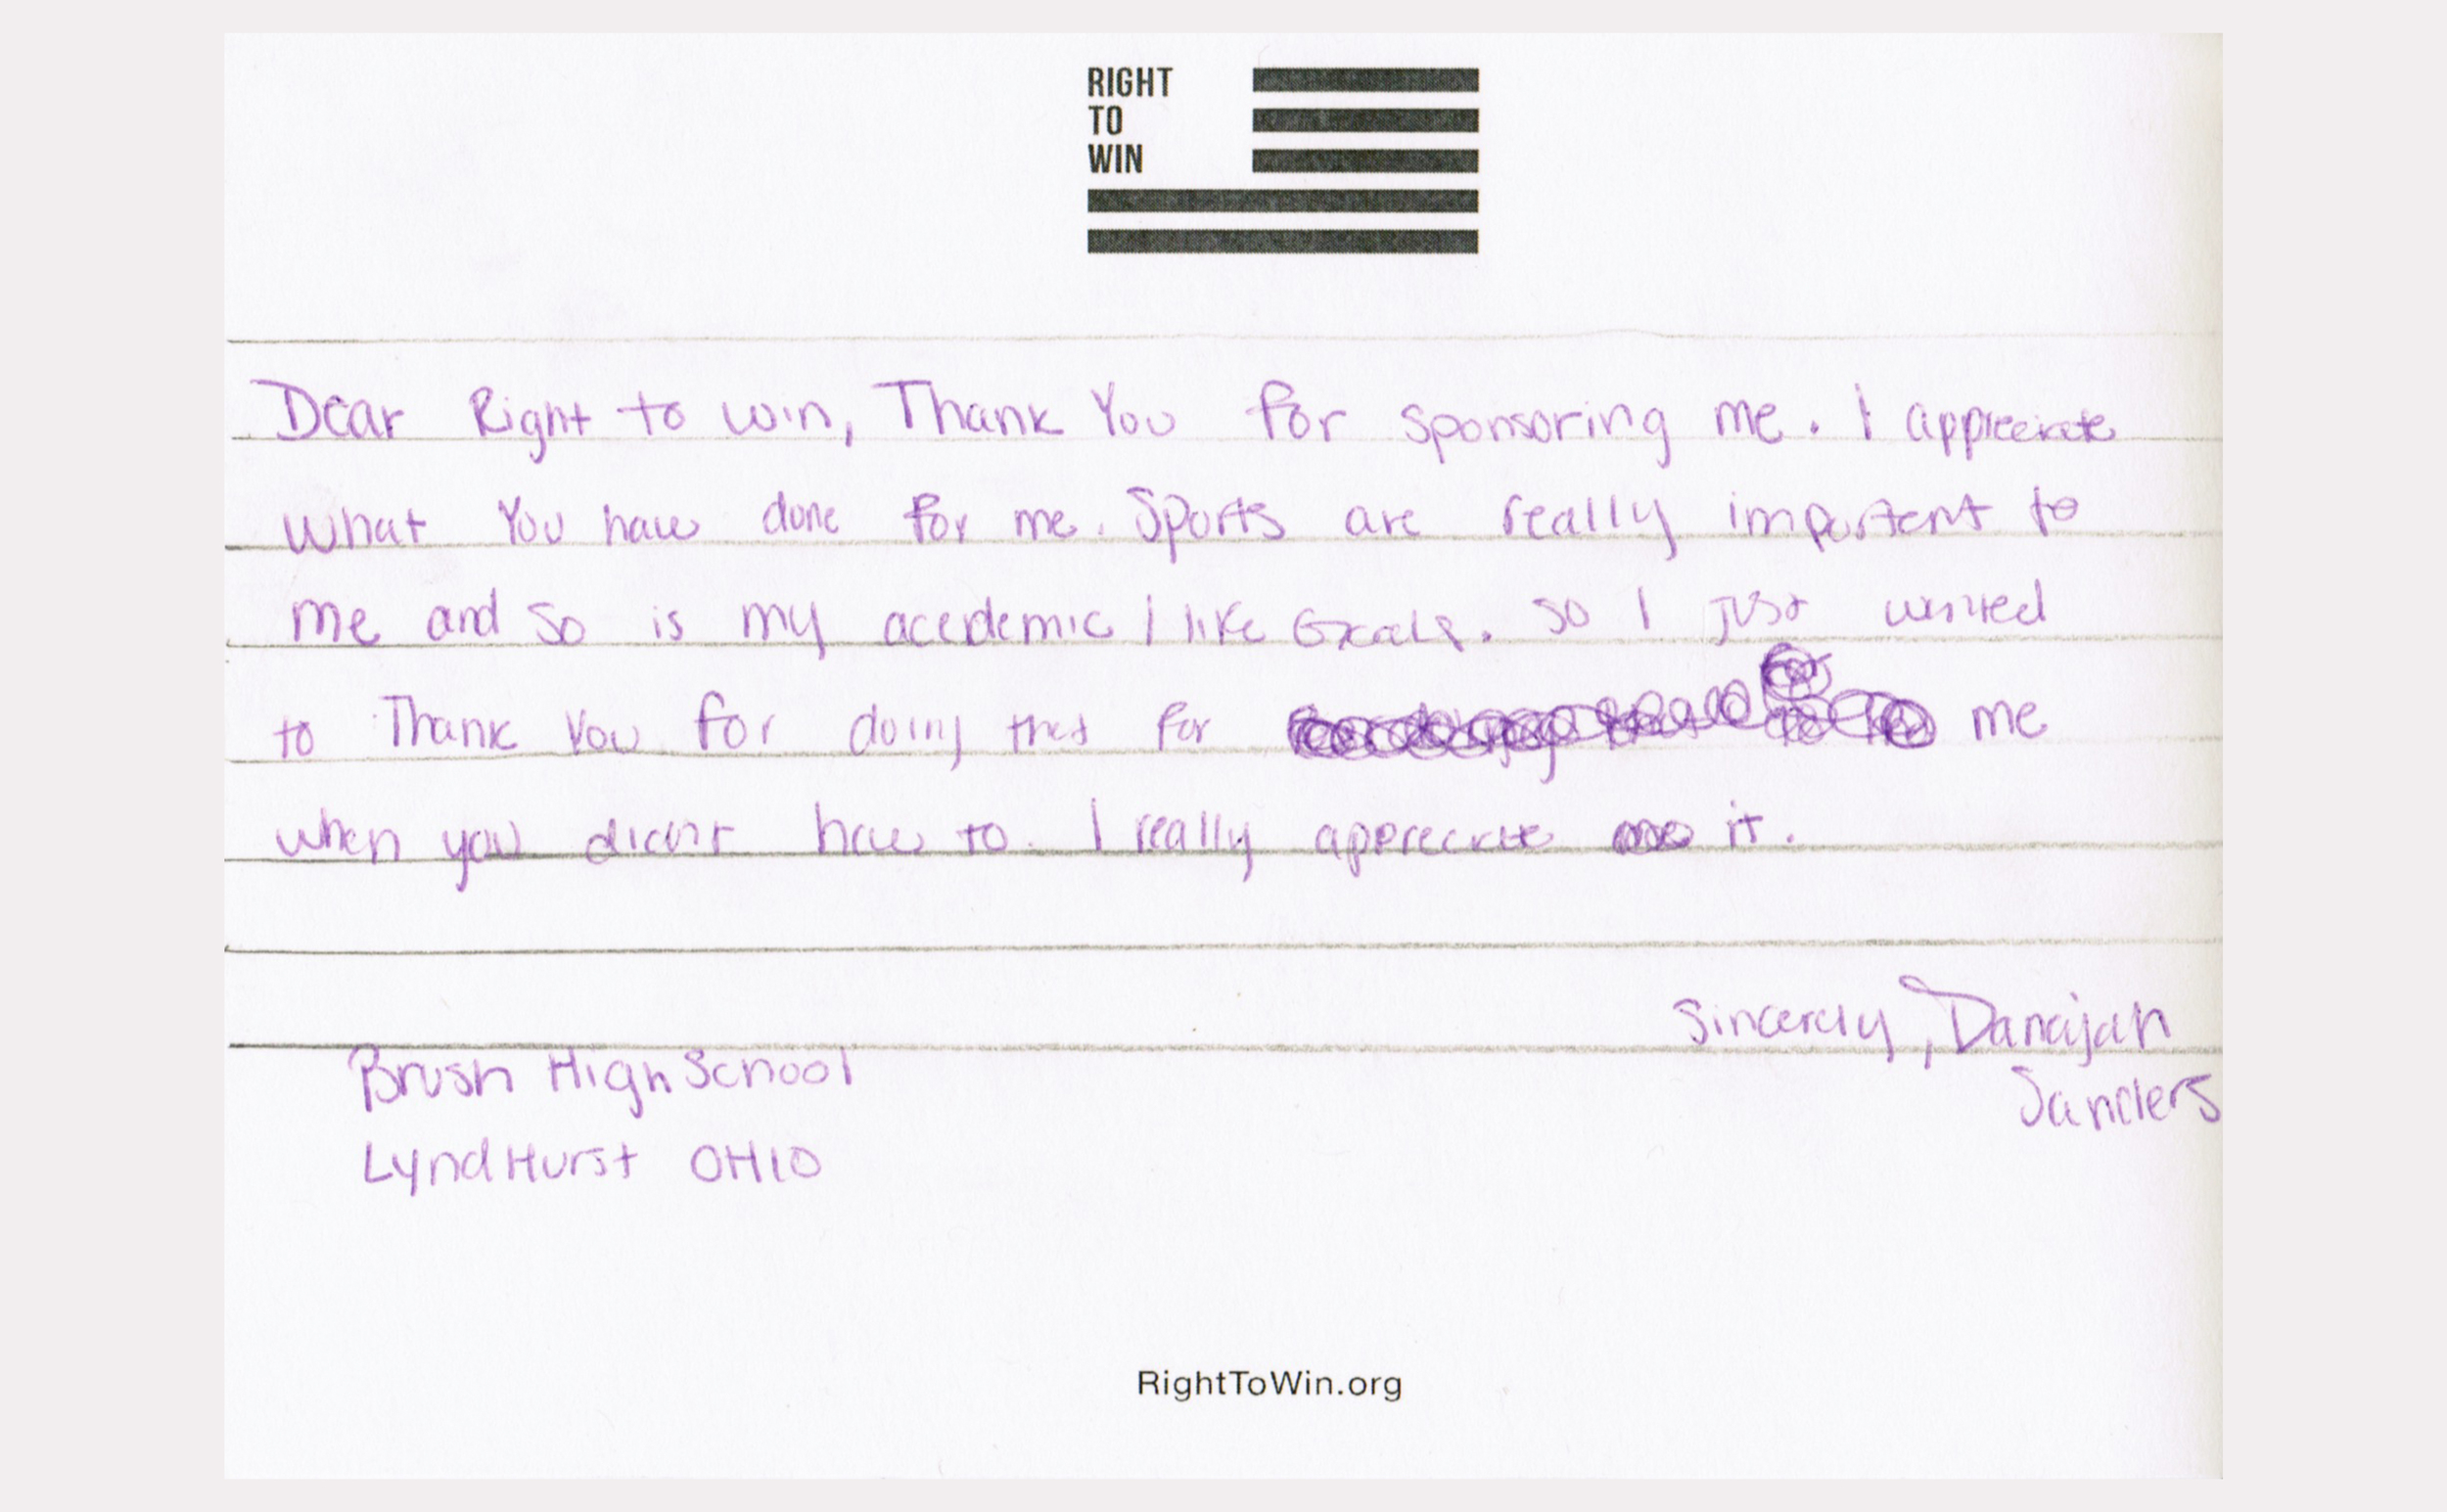 RIGHT
TO
WIN
Dear Right to win, Thank You for sponsoring me. I appreciate
what You have done for me. Sports are really important to
me and so is my acedemic I like Goals. so I just wanted
to Thank You for doing that for me
when you didn't have to. I really appreciate it.
Sincerely, Danajah
Sanders
Brush High School
LyndHurst OHIO
RightToWin.org